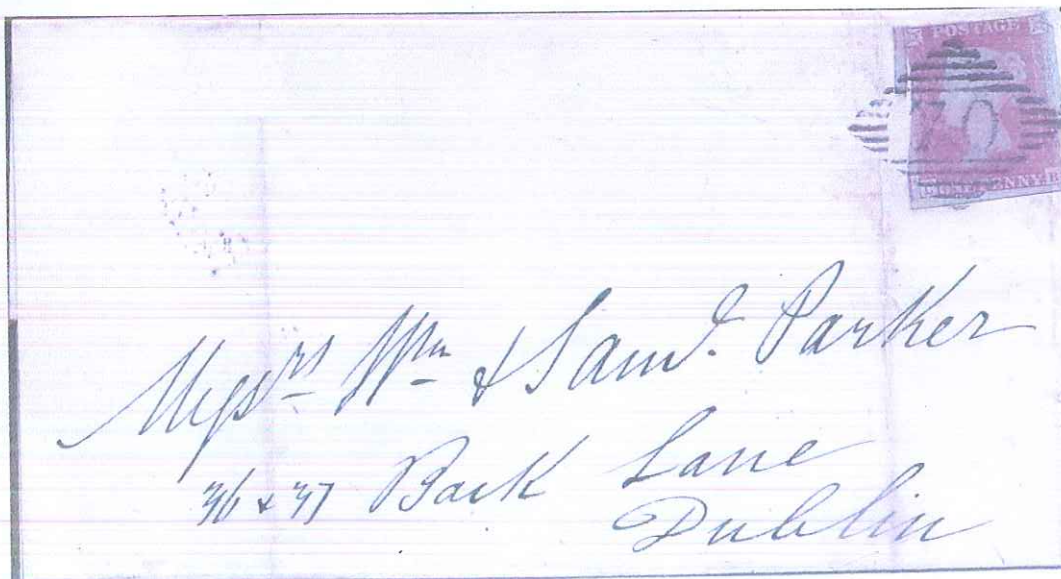 POSTAGE
70
ONE PENNY B
Messrs Wm & Saml. Parker
36 & 37 Back Lane
Dublin